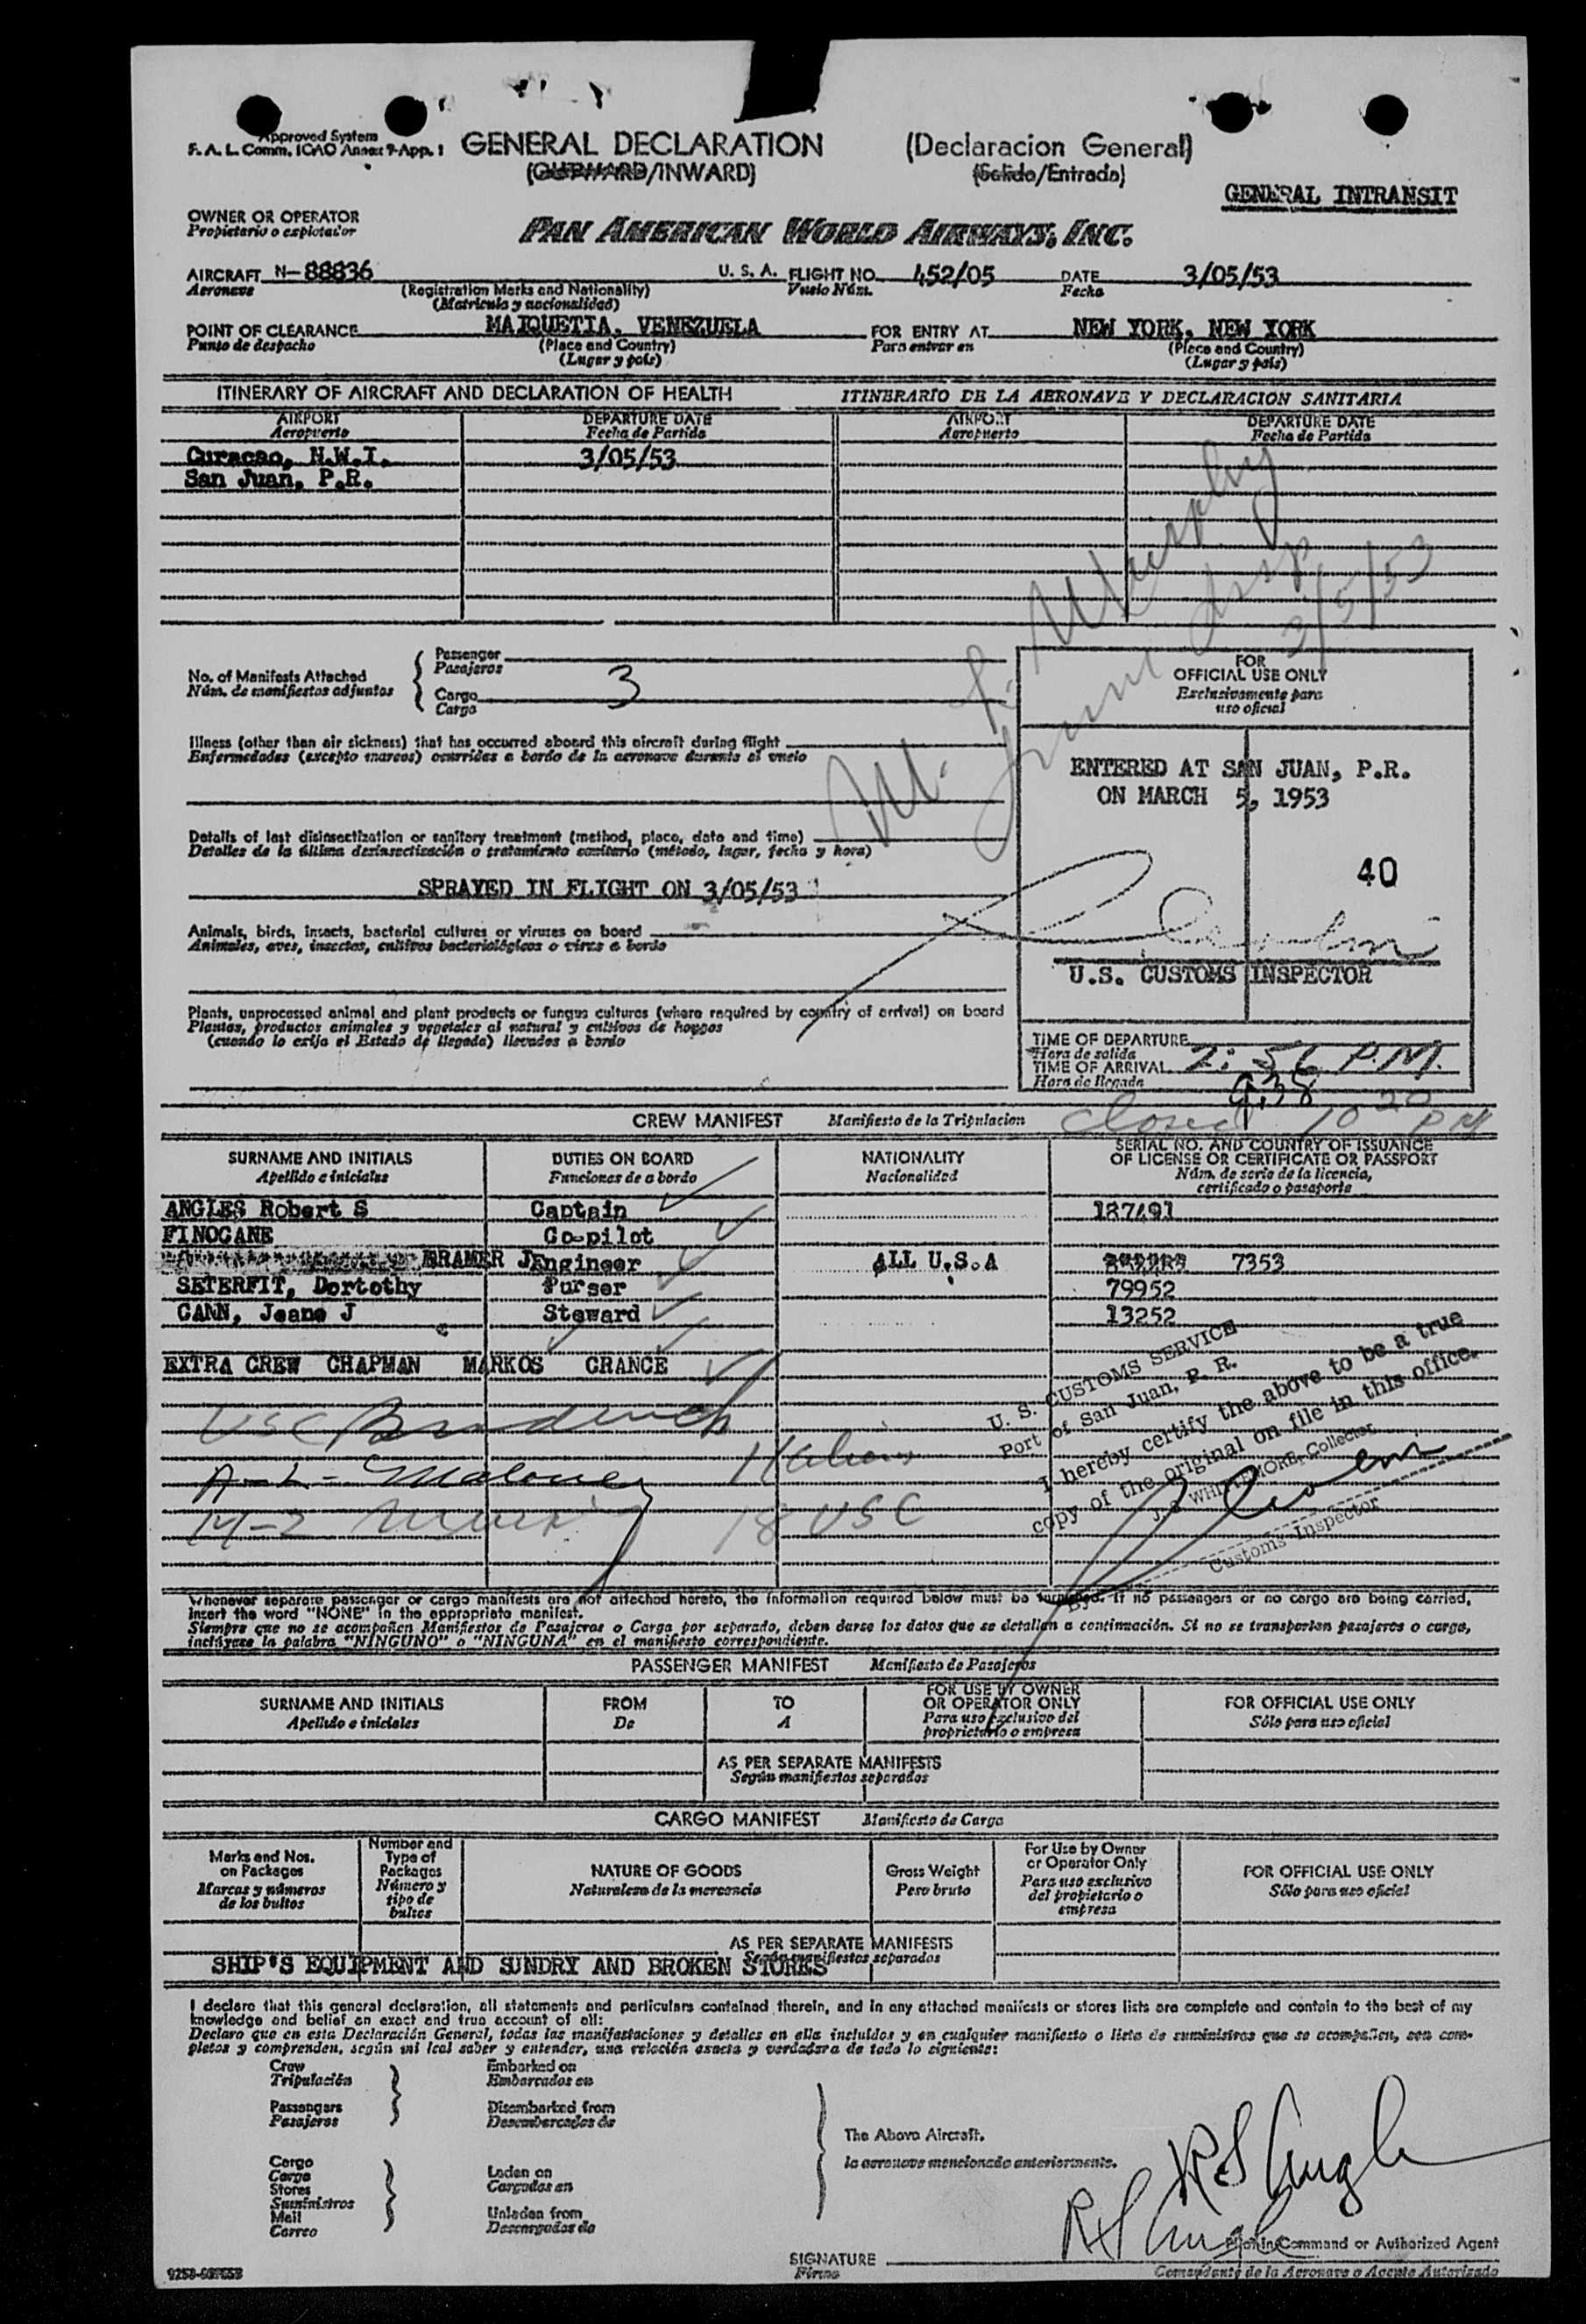 Approved System
F. A. L. Comm. ICAO Annex 9-App. 1
GENERAL DECLARATION (Declaracion General)
(OUTWARD/INWARD) (Salida/Entrada)
GENERAL INTRANSIT
OWNER OR OPERATOR
Propietario o explotador
PAN AMERICAN WORLD AIRWAYS, INC.
AIRCRAFT N-88836 U. S. A. FLIGHT NO. 452/05 DATE 3/05/53
Aeronave (Registration Marks and Nationality) Vuelo Núm. Fecha
(Matricula y nacionalidad)
POINT OF CLEARANCE MAIQUETIA, VENEZUELA FOR ENTRY AT NEW YORK, NEW YORK
Punto de despacho (Place and Country) Para entrar en (Place and Country)
(Lugar y país) (Lugar y país)
ITINERARY OF AIRCRAFT AND DECLARATION OF HEALTH ITINERARIO DE LA AERONAVE Y DECLARACION SANITARIA
AIRPORT DEPARTURE DATE AIRPORT DEPARTURE DATE
Aeropuerto Fecha de Partida Aeropuerto Fecha de Partida
Curacao, N.W.I. 3/05/53
San Juan, P.R.
M. F. Murphy
Immi Insp
3/5/53
No. of Manifests Attached
Núm. de manifiestos adjuntos
Passenger
Pasajeros
Cargo 3
Carga
FOR
OFFICIAL USE ONLY
Exclusivamente para
uso oficial
Illness (other than air sickness) that has occurred aboard this aircraft during flight
Enfermedades (excepto mareos) ocurridas a bordo de la aeronave durante el vuelo
ENTERED AT SAN JUAN, P.R.
ON MARCH 5, 1953
40
U.S. CUSTOMS INSPECTOR
Details of last disinsectization or sanitary treatment (method, place, date and time)
Detalles de la última desinsectización o tratamiento sanitario (método, lugar, fecha y hora)
SPRAYED IN FLIGHT ON 3/05/53
Animals, birds, insects, bacterial cultures or viruses on board
Animales, aves, insectos, cultivos bacteriológicos o virus a bordo
Plants, unprocessed animal and plant products or fungus cultures (where required by country of arrival) on board
Plantas, productos animales y vegetales al natural y cultivos de hongos
(cuando lo exija el Estado de llegada) llevados a bordo
TIME OF DEPARTURE
Hora de salida
TIME OF ARRIVAL 2:56 P.M.
Hora de llegada 9:38
Closed 10 20 PM
CREW MANIFEST Manifiesto de la Tripulacion
SURNAME AND INITIALS DUTIES ON BOARD NATIONALITY SERIAL NO. AND COUNTRY OF ISSUANCE
OF LICENSE OR CERTIFICATE OR PASSPORT
Apellido e iniciales Funciones de a bordo Nacionalidad Núm. de serie de la licencia,
certificado o pasaporte
ANGLES Robert S Captain 187491
FINOCANE Co-pilot
BRAMER J Engineer ALL U.S.A 7353
SETERFIT, Dortothy Purser 79952
CANN, Jeane J Steward 13252
EXTRA CREW CHAPMAN MARKOS CRANCE
USC
A-L- Maloney
M-2 18 USC
U. S. CUSTOMS SERVICE
Port of San Juan, P. R.
I hereby certify the above to be a true
copy of the original on file in this office.
J. S. WHITTEMORE, Collector
By
Customs Inspector
Whenever separate passenger or cargo manifests are not attached hereto, the information required below must be furnished. If no passengers or no cargo are being carried,
insert the word "NONE" in the appropriate manifest.
Siempre que no se acompañen Manifiestos de Pasajeros o Carga por separado, deben darse los datos que se detallan a continuación. Si no se transportan pasajeros o carga,
inclúyase la palabra "NINGUNO" o "NINGUNA" en el manifiesto correspondiente.
PASSENGER MANIFEST Manifiesto de Pasajeros
SURNAME AND INITIALS FROM TO FOR USE BY OWNER
OR OPERATOR ONLY FOR OFFICIAL USE ONLY
Apellido e iniciales De A Para uso exclusivo del
proprietario o empresa Sólo para uso oficial
AS PER SEPARATE MANIFESTS
Según manifiestos separados
CARGO MANIFEST Manifiesto de Carga
Marks and Nos.
on Packages
Marcas y números
de los bultos
Number and
Type of
Packages
Número y
tipo de
bultos
NATURE OF GOODS
Naturaleza de la mercancia
Gross Weight
Peso bruto
For Use by Owner
or Operator Only
Para uso exclusivo
del propietario o
empresa
FOR OFFICIAL USE ONLY
Sólo para uso oficial
AS PER SEPARATE MANIFESTS
Según manifiestos separados
SHIP'S EQUIPMENT AND SUNDRY AND BROKEN STORES
I declare that this general declaration, all statements and particulars contained therein, and in any attached manifests or stores lists are complete and contain to the best of my
knowledge and belief an exact and true account of all:
Declaro que en esta Declaración General, todas las manifestaciones y detalles en ella incluidos y en cualquier manifiesto o lista de suministros que se acompañen, son com-
pletos y comprenden, según mi leal saber y entender, una relación exacta y verdadera de todo lo siguiente:
Crew Embarked on
Tripulación Embarcados en
Passengers Disembarked from
Pasajeros Desembarcados de
The Above Aircraft.
la aeronave mencionada anteriormente.
Cargo
Carga
Stores
Suministros
Mail
Correo
Laden on
Cargados en
Unladen from
Descargados de
SIGNATURE
Firma
Pilot in Command or Authorized Agent
Comandante de la Aeronave o Agente Autorizado